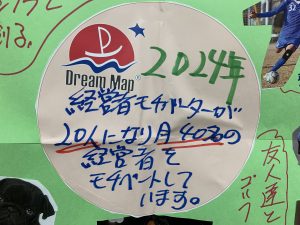 Dream Map®
2024年
経営者モチベーターが
20人になり月40名の
経営者を
モチベートして
います。
友人達と
ゴルフ